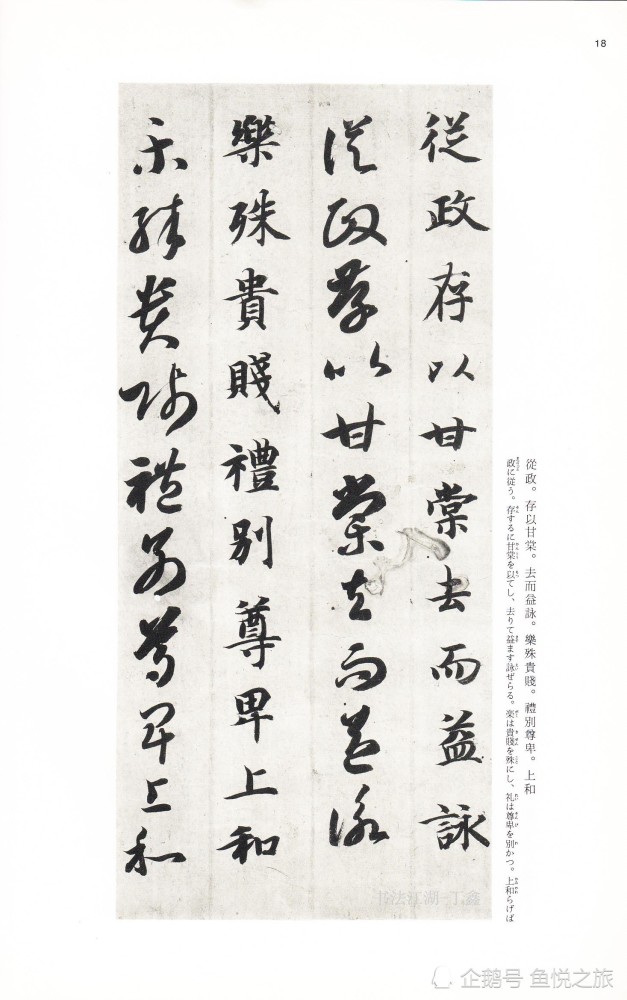 18
從政存以甘棠去而益詠
從政存以甘棠去而益詠
樂殊貴賤禮别尊卑上和
樂殊貴賤禮别尊卑上和
從政。存以甘棠。去而益詠。樂殊貴賤。禮別尊卑。上和
政に従う。存するに甘棠を以てし、去りて益ます詠ぜらる。楽は貴賤を殊にし、礼は尊卑を別かつ。上和らげば
书法江湖-丁鑫
企鹅号 鱼悦之旅